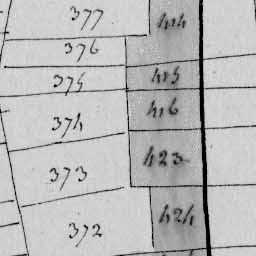 377 414
376
375 415
374 416
373 423
372 424